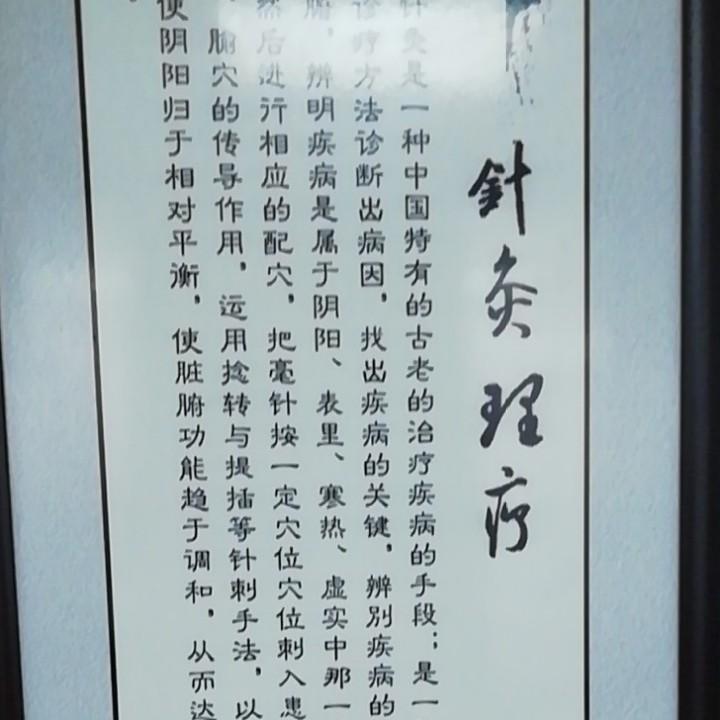 針灸理疗
针灸是一种中国特有的古老的治疗疾病的手段；是一
诊疗方法诊断出病因，找出疾病的关键，辨别疾病的
腑，辨明疾病是属于阴阳、表里、寒热、虚实中那一
然后进行相应的配穴，把毫针按一定穴位穴位刺入患
、腧穴的传导作用，运用捻转与提插等针刺手法，以
使阴阳归于相对平衡，使脏腑功能趋于调和，从而达